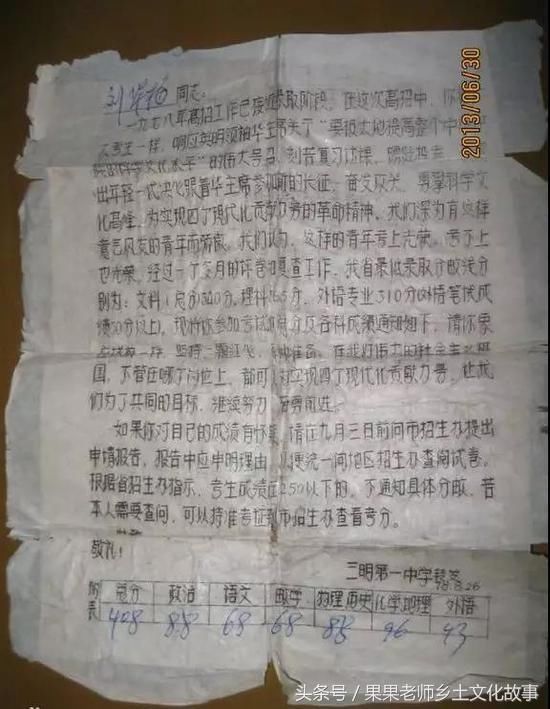 同志：
一九七八年高招工作已接近录取阶段。在这次高招中，你
一样，响应英明领袖华主席关于“要极大地提高整个中
科学文化水平”的伟大号召，刻苦复习功课，踊跃报考，
出年轻一代决心跟着华主席参加新的长征，奋发
化高峰，为实现四个现代化贡献力量的革命精神，我们深为有这样
意气风发的青年而骄傲。我们认为，这样的青年考上光荣，考不上
也光荣。经过一个多月的评卷和复查工作，我省最低录取分数线分
别为：文科（总分）300分，理科 分，外语专业310分（外语笔试成
绩50分以上），现将你参加考试的总分及各科成绩通知如下，请你象
一样，坚持一颗红心， 准备，在我们伟大的社会主义
国，不管在哪个岗位上，都可以对实现四个现代化贡献力量，让我
们为了共同的目标，继续努力，奋勇前进。
如果你对自己的成绩有怀疑，请在九月三日前向市招生办提出
申请报告，报告中应申明理由，以便统一向地区招生办查阅试卷。
根据省招生办指示，考生成绩在250以下的，不通知具体分数，若
本人需要查问，可以持准考证到市招生办查看考分。
敬礼！
三明第一中学
78.8.26
附表 总分 政治 语文 数学 物理历史 化学地理 外语
408 88 68 68 88 96 43
2013/06/30
头条号／果果老师乡土文化故事